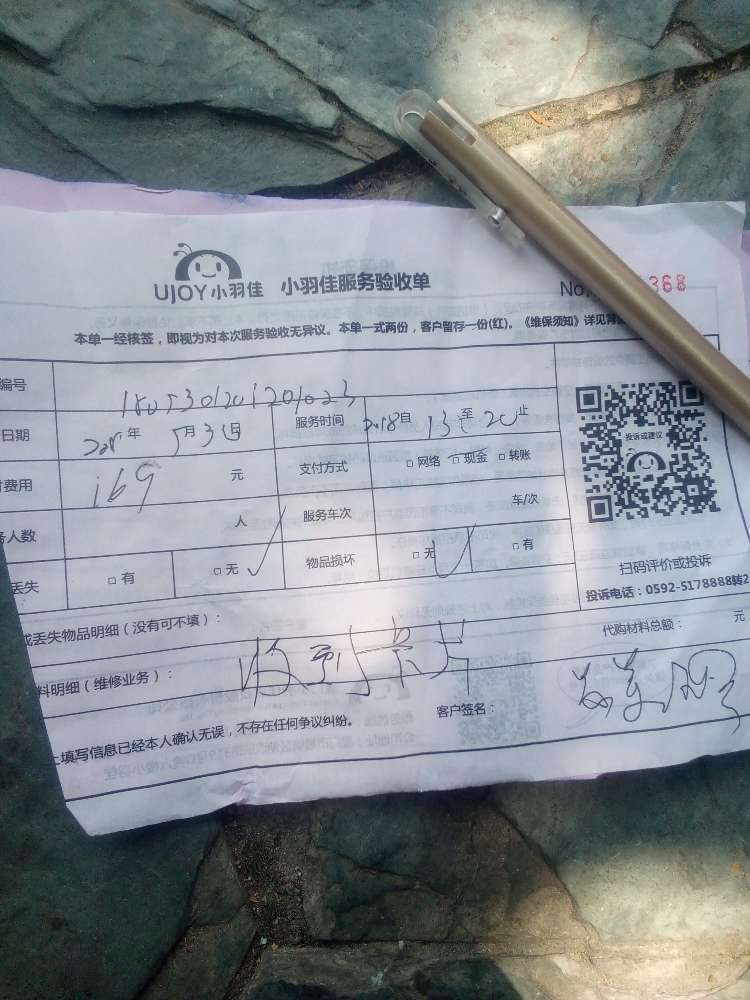 UJOY小羽佳 小羽佳服务验收单 No. 368
本单一经核签，即视为对本次服务验收无异议。本单一式两份，客户留存一份(红)。《维保须知》详见背
编号 1805301201201023
日期 年 5月3 日 服务时间 自13至20止
费用 169 元 支付方式 □网络 □现金 □转账
人数 人 服务车次 车/次
丢失 □有 □无 物品损坏 □无 □有
投诉或建议
扫码评价或投诉
投诉电话：0592-5178888转2
或丢失物品明细（没有可不填）： 代购材料总额： 元
料明细（维修业务）： 收到卡片
上填写信息已经本人确认无误，不存在任何争议纠纷。 客户签名：